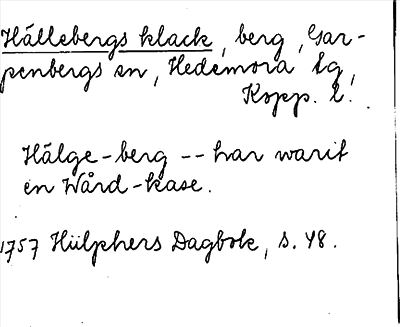 Hällebergs klack, berg, Gar-
penbergs sn, Hedemora tg,
Kopp. l.
Hälge-berg -- har warit
en Wård-kase.
1757 Hülphers Dagbok, s. 48.